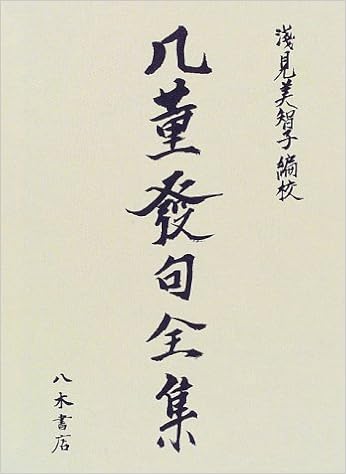 淺見美智子編校
几董發句全集
八木書店